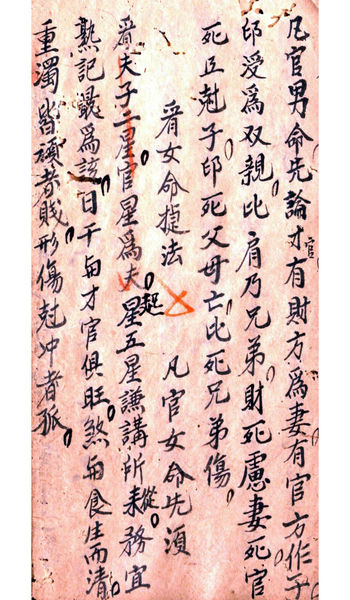 凡官男命先論才官有財方為妻有官方作子
印爱為双親比肩乃兄弟財死慮妻死官
死丑尅子印死父母亡比死兄弟傷
看女命捷法　凡官女命先須
看夫子二星官星為夫星起五星謙講所耒從務宜
熟記最為該日干與才官俱旺煞與食生而清
重濁皆頑者賎形傷尅冲者孤